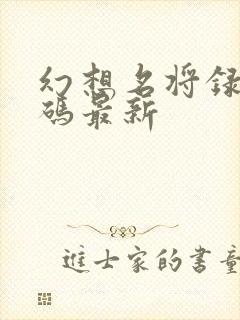 幻想名将録
碼最新
進士家的書童